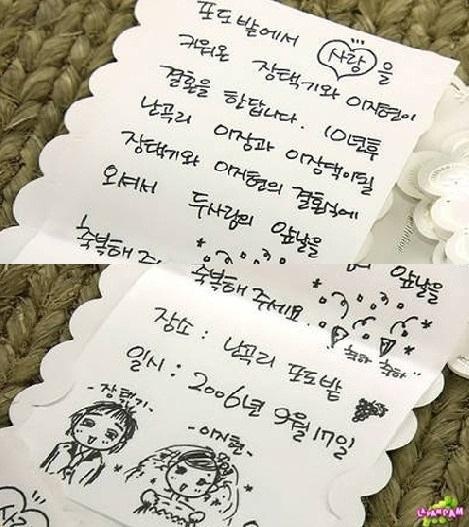 포도밭에서 사랑을
키워온 장택기와 이지현이
결혼을 한답니다. 10년후
난곡리 이장과 이장댁이될
장택기와 이지현의 결혼식에
오셔서 두사람의 앞날을
축복해 주
의 앞날을
축복해 주세요.
축하 축하
장소 : 난곡리 포도밭
일시 : 2006년 9월 17일
-장택기-
-이지현-